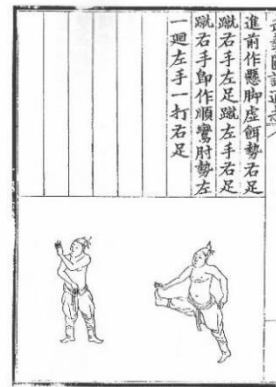 進前作懸脚虛餌勢右足
蹴右手左足蹴左手右足
蹴右手卽作順鸞肘勢左
一廻左手一打右足